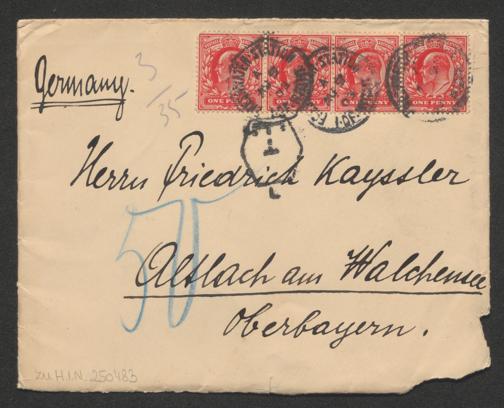 Germany.
3/35
ONE PENNY ONE PENNY ONE PENNY ONE PENNY
T
L
Herrn Friedrich Kayssler
50
Altlach am Walchensee
Oberbayern.
zu H.I.N. 250483